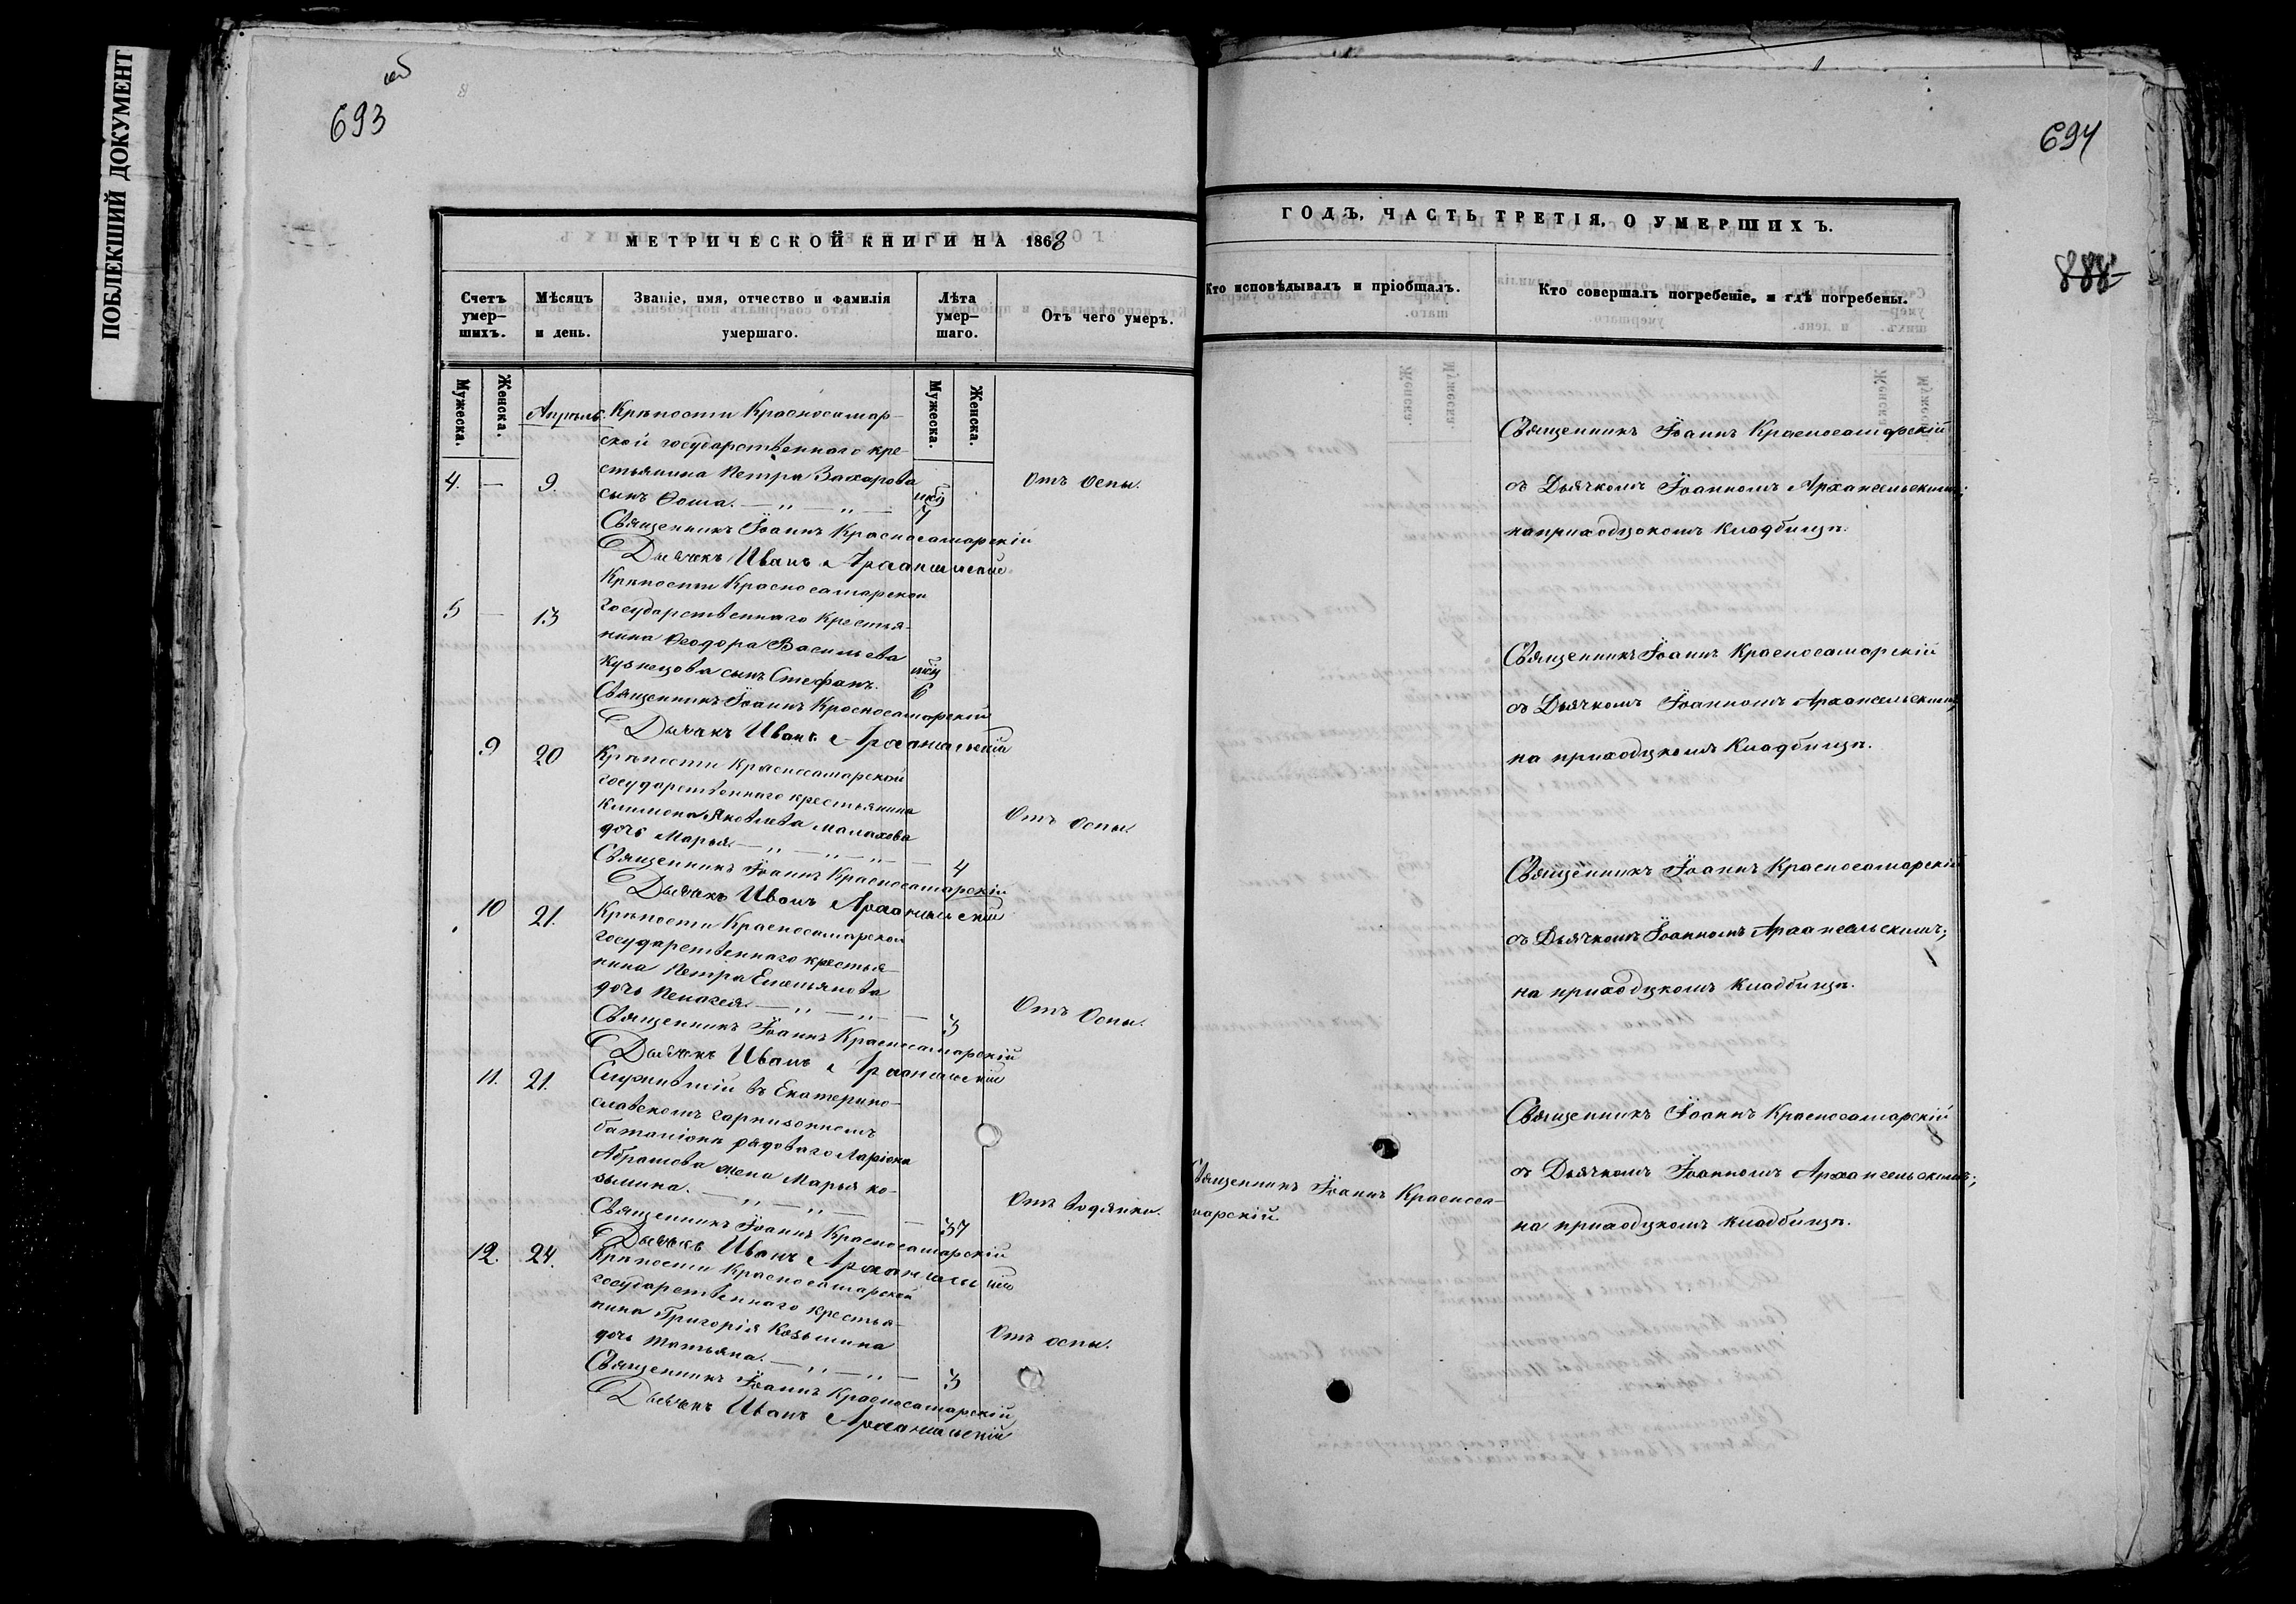 ПОБЛЕКШИЙ ДОКУМЕНТ
об
693
МЕТРИЧЕСКОЙ КНИГИ НА 1868
Счетъ умер-шихъ.
Мѣсяцъ и день.
Званіе, имя, отчество и фамилія умершаго.
Лѣта умер-шаго.
Отъ чего умеръ.
Мужеска.
Женска.
Мужеска.
Женска.
Апрѣль.
Крѣпости Красносамар-
ской государственнаго кре-
стьянина Петра Захарова
4. — 9. сынъ Ѳома. — „ — „ — 7 Отъ Оспы.
Священникъ Іоаннъ Красносамарскій
Дьячекъ Иванъ Архангельскій
Крѣпости Красносамарской
5 — 13 государственнаго Крестья-
нина Ѳеодора Васильева
Кузнецова сынъ Стефанъ. 6
Священникъ Іоаннъ Красносамарскій
Дьячекъ Иванъ Архангельскій
9 20 Крѣпости Красносамарской
государственнаго крестьянина
Яковлева Малахова
дочь Марья — „ — „ — „ — 4 Отъ Оспы.
Священникъ Іоаннъ Красносамарскій
Дьячекъ Иванъ Архангельскій
10 21. Крѣпости Красносамарской
государственнаго крестья-
нина Петра Емельянова
дочь Пелагея. — „ — „ — 3 Отъ Оспы.
Священникъ Іоаннъ Красносамарскій
Дьячекъ Иванъ Архангельскій
11. 21. Служившій въ Екатерино-
славскомъ гарнизонномъ
баталіонѣ рядоваго Ларіона
Абрамова жена Марья ко-
зьмина. — „ — „ — 37 Отъ водянки.
Священникъ Іоаннъ Красносамарскій
Дьячекъ Иванъ Архангельскій
12. 24. Крѣпости Красносамарской
государственнаго крестья-
нина Григорія Козьмина
дочь Татьяна. — „ — „ — 3 Отъ оспы.
Священникъ Іоаннъ Красносамарскій
Дьячекъ Иванъ Архангельскій
694
888
ГОДЪ, ЧАСТЬ ТРЕТІЯ, О УМЕРШИХЪ.
Кто исповѣдывалъ и пріобщалъ.
Кто совершалъ погребеніе, и гдѣ погребены.
Священникъ Іоаннъ Красносамарскій
съ Дьячкомъ Іоанномъ Архангельскимъ;
на приходскомъ Кладбищѣ.
Священникъ Іоаннъ Красносамарскій
съ Дьячкомъ Іоанномъ Архангельскимъ;
на приходскомъ Кладбищѣ.
Священникъ Іоаннъ Красносамарскій
съ Дьячкомъ Іоанномъ Архангельскимъ;
на приходскомъ Кладбищѣ.
Священникъ Іоаннъ Красноса-
марскій
Священникъ Іоаннъ Красносамарскій
съ Дьячкомъ Іоанномъ Архангельскимъ;
на приходскомъ кладбищѣ.